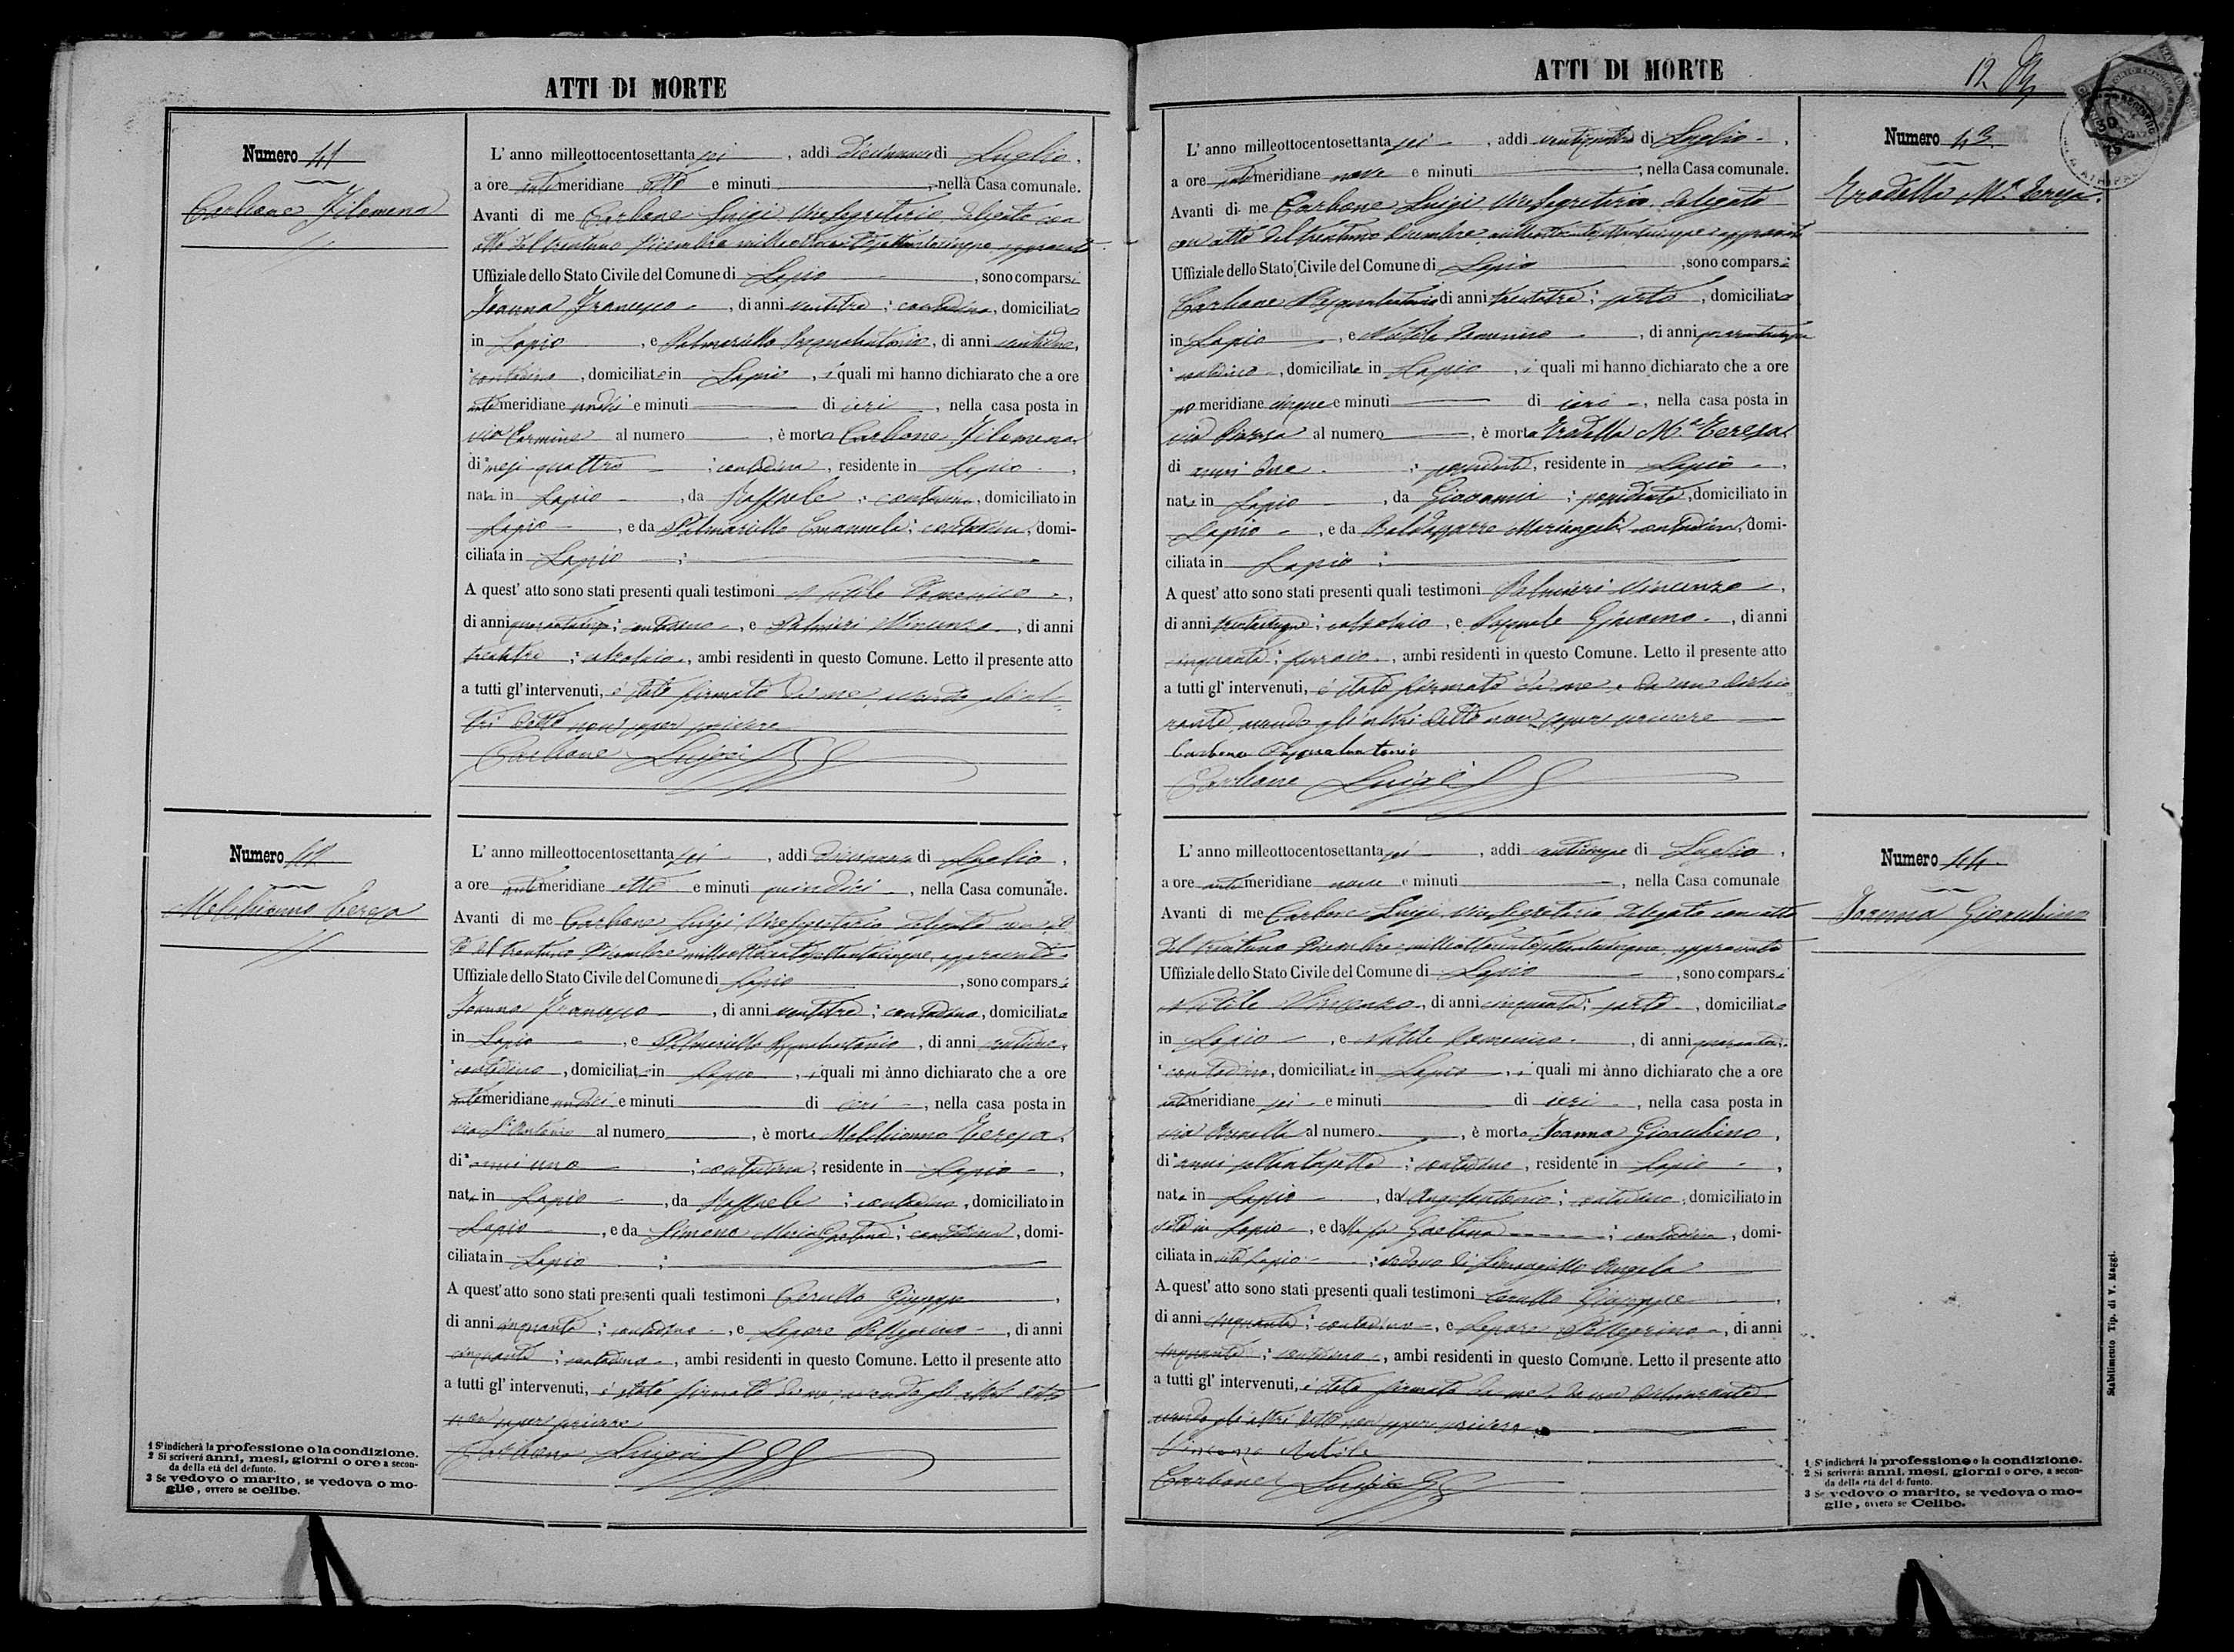 ATTI DI MORTE
Numero 41
Carbone Filomena
L' anno milleottocentosettanta sei, addì diciannove di Luglio,
a ore anti meridiane otto e minuti, nella Casa comunale.
Avanti di me Carbone Luigi Vice Segretario delegato con
atto del trentuno Dicembre milleottocentosettantacinque approvato
Uffiziale dello Stato Civile del Comune di Lapio, sono comparsi
Ioanna Francesco, di anni ventitre; contadino, domiciliato
in Lapio, e Palmariello Pasqualantonio, di anni ventidue,
contadino, domiciliato in Lapio, i quali mi hanno dichiarato che a ore
anti meridiane undici e minuti di ieri, nella casa posta in
via Carmine al numero, è morta Carbone Filomena
di mesi quattro; contadina, residente in Lapio,
nata in Lapio, da Raffaele; contadino, domiciliato in
Lapio, e da Palmariello Emanuela; contadina, domi-
ciliata in Lapio;
A quest' atto sono stati presenti quali testimoni Nutile Domenico,
di anni quarantacinque; contadino, e Palmieri Vincenzo, di anni
trentatre; calzolaio, ambi residenti in questo Comune. Letto il presente atto
a tutti gl' intervenuti, è stato firmato da me, avendo gli al-
tri detto non saper scrivere
Carbone Luigi
Numero 42
Melchionno Teresa
L' anno milleottocentosettanta sei, addì diciannove di Luglio,
a ore anti meridiane otto e minuti quindici, nella Casa comunale.
Avanti di me Carbone Luigi Vice Segretario delegato con at-
to del trentuno Dicembre milleottocentosettantacinque, approvato
Uffiziale dello Stato Civile del Comune di Lapio, sono comparsi
Ioanna Francesco, di anni ventitre; contadino, domiciliato
in Lapio, e Palmariello Pasqualantonio, di anni ventidue,
contadino, domiciliato in Lapio, i quali mi ànno dichiarato che a ore
anti meridiane undici e minuti di ieri, nella casa posta in
via S. Antonio al numero, è morta Melchionno Teresa,
di anni uno; contadina, residente in Lapio,
nata in Lapio, da Raffaele; contadino, domiciliato in
Lapio, e da Simone Maria Gaetana; contadina, domi-
ciliata in Lapio;
A quest' atto sono stati presenti quali testimoni Cerullo Giuseppe,
di anni cinquanta; contadino, e Lepore Pellegrino, di anni
cinquanta; contadino, ambi residenti in questo Comune. Letto il presente atto
a tutti gl' intervenuti, è stato firmato da me, avendo gli altri detto
non saper scrivere
Carbone Luigi
1 S'indicherà la professione o la condizione.
2 Si scriverà anni, mesi, giorni o ore a secon-
da della età del defunto.
3 Se vedovo o marito, se vedova o mo-
glie, ovvero se celibe.
ATTI DI MORTE
12
L' anno milleottocentosettanta sei, addì ventiquattro di Luglio,
a ore anti meridiane nove e minuti, nella Casa comunale.
Avanti di me Carbone Luigi Vice Segretario delegato
con atto del trentuno Dicembre milleottocentosettantacinque approvato
Uffiziale dello Stato Civile del Comune di Lapio, sono comparsi
Carbone Pasqualantonio di anni trentatre; sarto, domiciliato
in Lapio, e Nutile Domenico, di anni quarantacinque
contadino, domiciliato in Lapio, i quali mi hanno dichiarato che a ore
po meridiane cinque e minuti di ieri, nella casa posta in
via Piazza al numero, è morta Tradella M.a Teresa
di anni due; possidente, residente in Lapio,
nata in Lapio, da Giovanni; possidente, domiciliato in
Lapio, e da Baldassarre Mariangela; contadina, domi-
ciliata in Lapio;
A quest' atto sono stati presenti quali testimoni Palmieri Vincenzo,
di anni; calzolaio, e Pasquale Giacomo, di anni
cinquanta; ferraio, ambi residenti in questo Comune. Letto il presente atto
a tutti gl' intervenuti, è stato firmato da me e da un dichia
rante, avendo gli altri detto non sapere scrivere
Carbone Pasqualantonio
Carbone Luigi
Numero 43
Tradella M.a Teresa
L' anno milleottocentosettanta sei, addì venticinque di Luglio,
a ore anti meridiane nove e minuti, nella Casa comunale
Avanti di me Carbone Luigi Vice Segretario delegato con atto
del trentuno Dicembre milleottocentosettantacinque, approvato
Uffiziale dello Stato Civile del Comune di Lapio, sono comparsi
Nutile Vincenzo, di anni cinquanta; sarto, domiciliato
in Lapio, e Nutile Domenico, di anni quaranta
contadino, domiciliato in Lapio, i quali mi ànno dichiarato che a ore
anti meridiane sei e minuti di ieri, nella casa posta in
via al numero, è morto Ioanna Gioacchino,
di anni settantasette; contadino, residente in Lapio,
nato in Lapio, da Angelantonio; contadino, domiciliato in
vita in Lapio, e da Gaetana; contadina, domi-
ciliata in vita Lapio; vedovo di Angela
A quest' atto sono stati presenti quali testimoni Cerullo Giuseppe,
di anni cinquanta; contadino, e Lepore Pellegrino, di anni
cinquanta; contadino, ambi residenti in questo Comune. Letto il presente atto
a tutti gl' intervenuti, è stato firmato da me e da un dichiarante
avendo gli altri detto non sapere scrivere
Vincenzo Nutile
Carbone Luigi
Numero 44.
Ioanna Gioacchino
1 S' indicherà la professione o la condizione.
2 Si scriverà: anni, mesi, giorni o ore, a secon-
da della età del defunto.
3 Se vedovo o marito, se vedova o mo-
glie, ovvero se Celibe.
Stabilimento Tip. di V. Maggi.